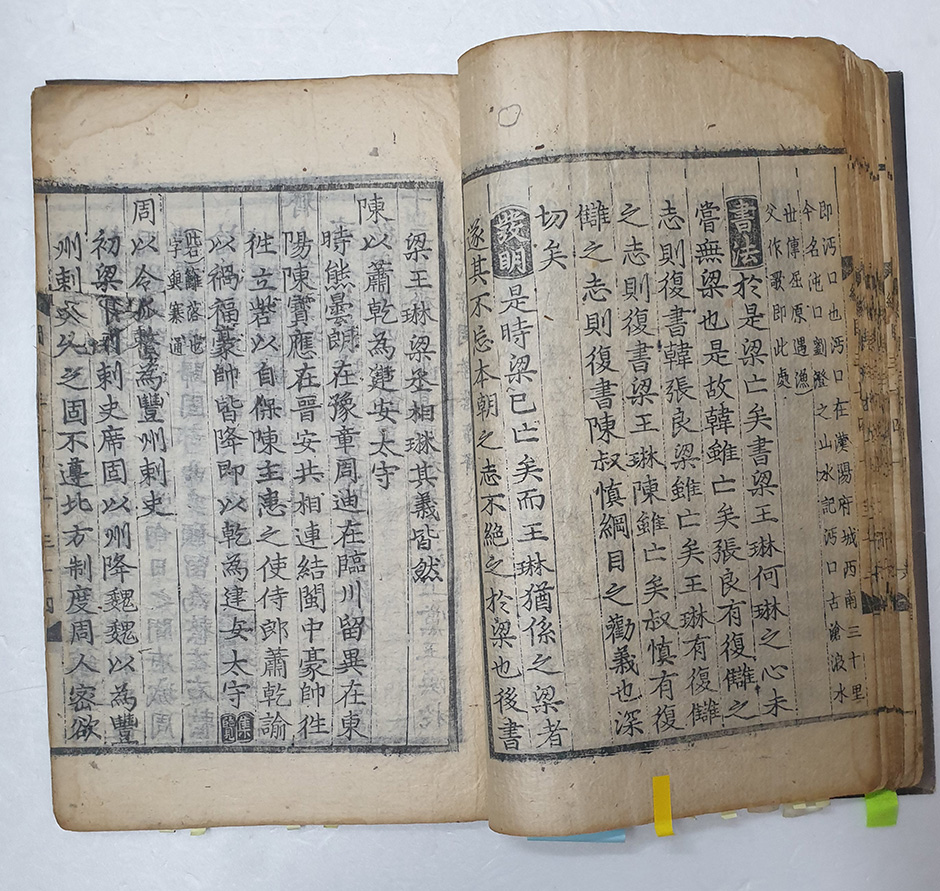 即沔口也沔口在漢陽府城西南三十里
今名沌口劉澄之山水記沔口古滄浪水
世傳屈原遇漁
父作歌即此處
書法於是梁亡矣書梁王琳何琳之心未
嘗無梁也是故韓雖亡矣張良有復讎之
志則復書韓張良梁雖亡矣王琳有復讎
之志則復書梁王琳陳雖亡矣叔慎有復
讎之志則復書陳叔慎綱目之勸義也深
切矣
發明是時梁已亡矣而王琳猶係之梁者
遂其不忘本朝之志不絶之於梁也後書
梁王琳梁丞相琳其義皆然
陳以蕭乾為建安太守
時熊曇朗在豫章周迪在臨川留異在東
陽陳寶應在晉安共相連結閩中豪帥徃
徃立砦以自保陳主患之使侍郎蕭乾諭
以禍福豪帥皆降即以乾為建安太守集覽
砦籬落也
字與寨通
周以令狐整為豐州刺史
初梁州刺史席固以州降魏魏以為豐
州刺史久之固不遵北方制度周人密欲